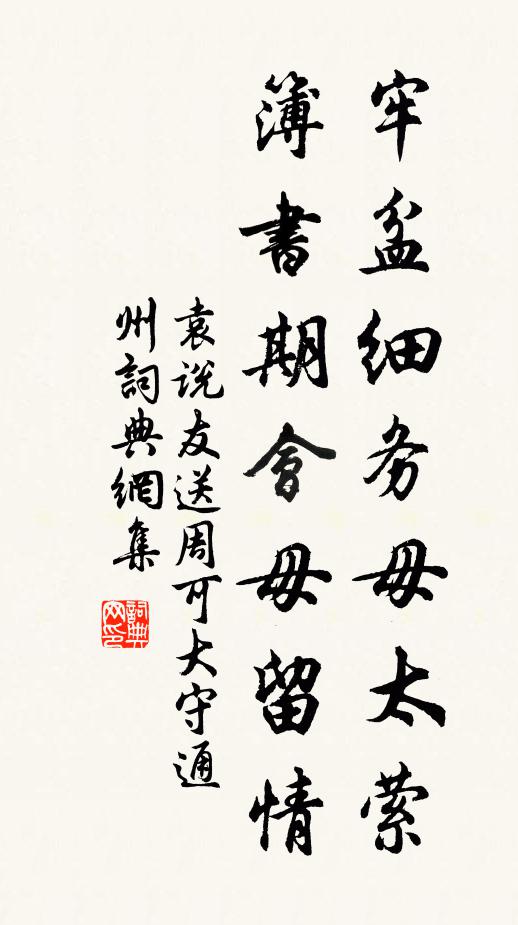 牢盆细务毋太萦
簿書期會毋留情
袁说友送周可大守通
州詞典網集
詞典网印